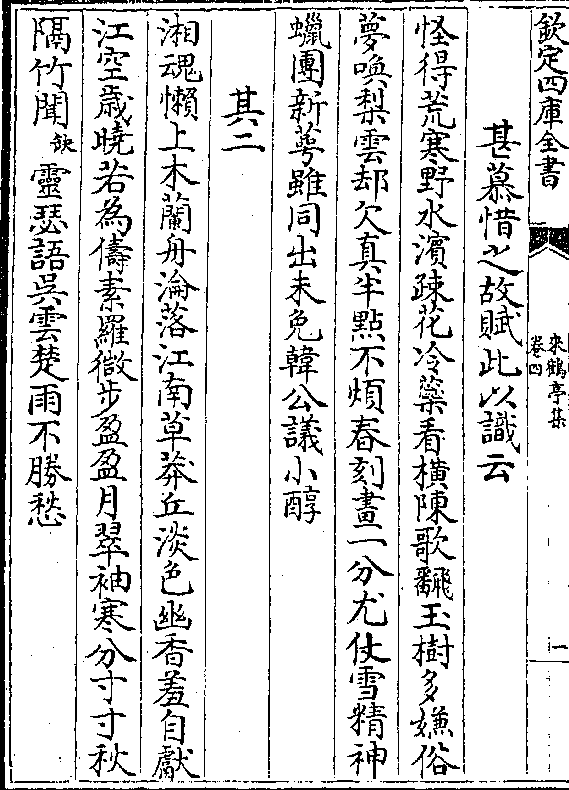 欽定四庫全書
來鶴亭集
卷四
一
甚慕惜之故賦此以識云
怪得荒寒野水濵疎花冷蘂看橫陳歌翻玉樹多嫌俗
夢喚梨雲却欠真半點不煩春刻畫一分尤仗雪精神
蠟團新蕚雖同出未免韓公議小醇
其二
湘魂懶上木蘭舟淪落江南草莽丘淡色幽香羞自獻
江空歲曉若為儔素羅微步盈盈月翠袖寒分寸寸秋
隔竹聞缺靈瑟語吳雲楚雨不勝愁